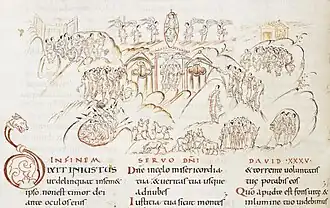 IN FINEM SERVO DÑI DAVID XXXV
DIXIT INIUSTUS
ut delinquat insem&
ipso non est timor dei
ante oculos eius
Dñe incelo misericordia
tua & ueritas tua usque
adnubes
Iustitia tua sicut montes
& torrente uoluntatis
potabis eos
apud te est fons uite &
inlumine tuo uidebim